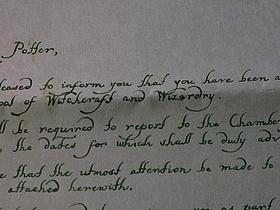 Potter,
leased to inform you that you have been a
ool of Witchcraft and Wizardry.
ll be required to report to the Chamber
, the dates for which shall be duly adv
e that the utmost attention be made to
attached herewith.
you as part